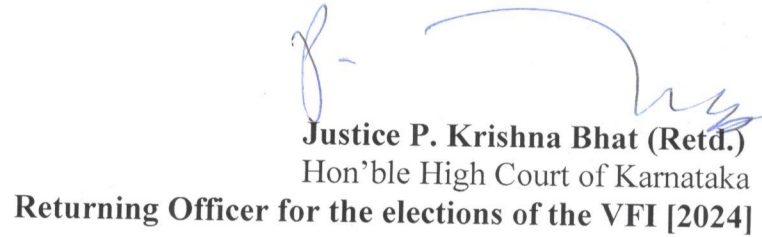 Justice P. Krishna Bhat (Retd.)
Hon'ble High Court of Karnataka
Returning Officer for the elections of the VFI [2024]